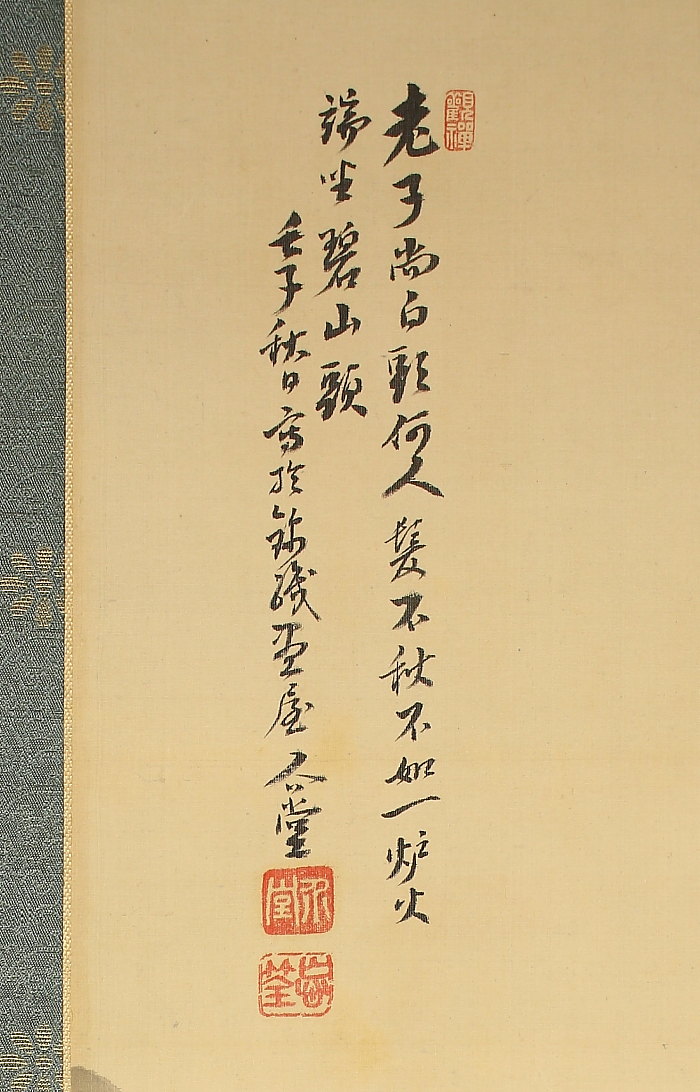 老子尚白頭何人髮不秋不如一炉火
端坐碧山頭
壬子秋日寫於錦織画屋 介堂